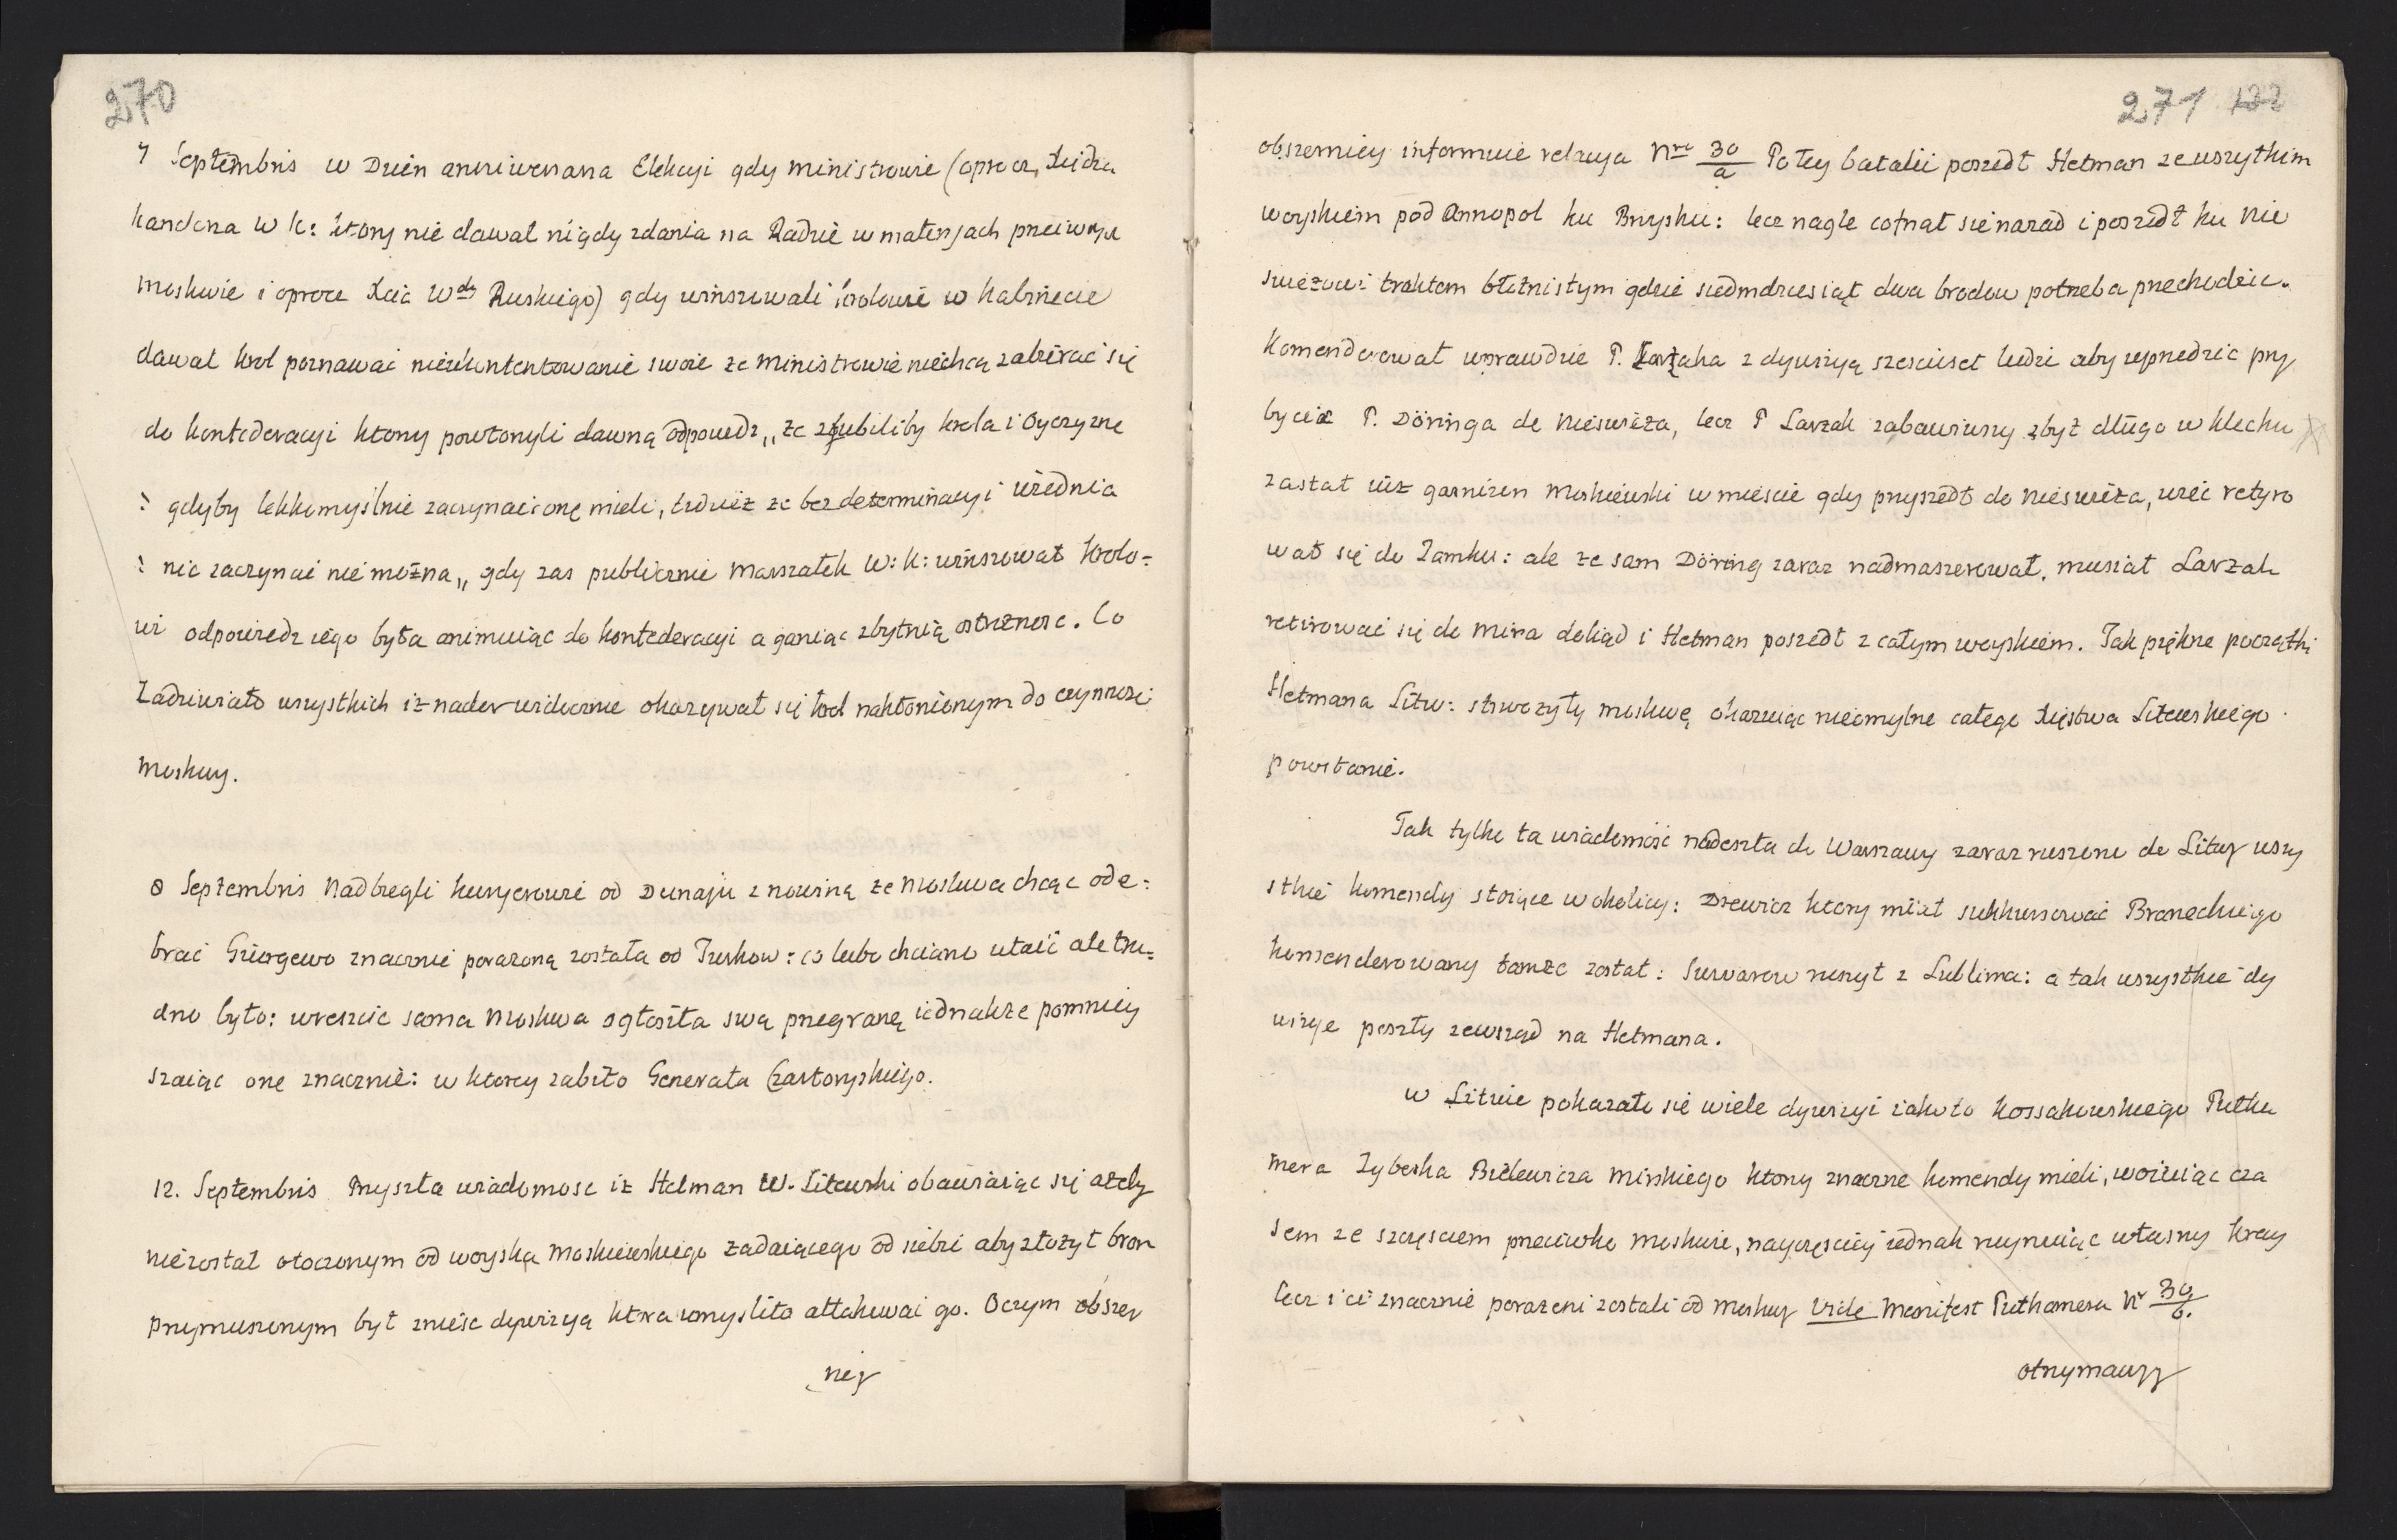 270
7 Septembris w Dzien anniwersarza Elekcyi gdy ministrowie (oprocz Xiedza
Kanclerza W K: ktory nie dawał nigdy zdania na Radzie w materyach przeciwnych
moskwie i oprocz Xcia Wdy Ruskiego) gdy winszowali krolowi w kabinecie
dawał krol poznawać nieukontentowanie swoie ze ministrowie niechcą zabierać się
do konfederacyi ktorzy powtorzyli dawną odpowiedz „ ze zgubiliby krola i Oyczyznę
gdyby lekkomyslnie zaczynać onę mieli, tudzież ze bez determinacyi Wiednia
nic zaczynać nie można „ gdy zas publicznie marszałek W: K: winszował krolo=
wi odpowiedz iego była animuiąc do konfederacyi a ganiąc zbytnią ostrożnosc. Co
zadziwiało wszystkich iż nader widocznie okazywał się krol nakłonionym do czynnosci
moskwy.
8 Septembris Nadbiegli kuryerowie od Dunaju z nowiną ze moskwa chcąc ode=
brać Giorgewo znacznie porażoną została od Turkow: co lubo chciano utaić ale tru=
dno było: wreszcie sama moskwa ogłosiła swą przegraną iednakze pomniey
szaiąc one znacznie: w ktorey zabito Generała Czartoryskiego.
12. Septembris Przyszła wiadomosc iż Hetman W. Litewski obawiaiąc się azeby
niezostał otoczonym od woyska moskiewskiego żądaiącego od siebie aby złożył bron
przymuszonym był zniesc dywizyą ktora umysliła attakować go. O czym obszer
niey
271 122
obszerniey informuie relacya Nro 30/a Po tey batalii poszedł Hetman ze wszytkim
woyskiem pod Annopol ku Brysku: lecz nagle cofnał sie nazad i poszedł ku Nie
swieżowi traktem błotnistym gdzie siedmdziesiąt dwa brodow potrzeba przechodzic.
Komenderował wprawdzie P. Larzaka z dywizyą szesciuset ludzi aby uprzedzic przy
bycie P. Döringa do Nieswieża, lecz P Larzak zabawiwszy zbyt długo w Klecku
zastał iuż garnizon moskiewski w miescie gdy przyszedł do nieswieża, wiec retyro
wał się do Zamku: ale ze sam Döring zaraz nadmaszerował, musiał Larzak
retirować się do mira dokąd i Hetman poszedł z całym woyskiem. Tak piękne początki
Hetmana Litw: strwożyły moskwę okazuiąc nieomylne całego Xięstwa Litewskiego
powstanie.
Jak tylko ta wiadomość nadeszła do Warszawy zaraz ruszono do Litwy wszy
stkie komendy stoiące w okolicy: Drewicz ktory miał sukkursować Braneckiego
komenderowany tamże został: Suwarow ruszył z Lublina: a tak wszystkie dy
wizye poszły zewsząd na Hetmana.
w Litwie pokazało się wiele dywizyi iako to Kossakowskiego Putka
mera Zyberka Bilewicza Minskiego ktorzy znaczne komendy mieli, woiuiąc cza
sem ze szczęsciem przeciwko moskwie, nayczęsciey iednak ruynuiąc własny kray
lecz i ci znacznie porażeni zostali od moskwy Vide Manifest Puthamera Nr 30/b.
otrzymawszy